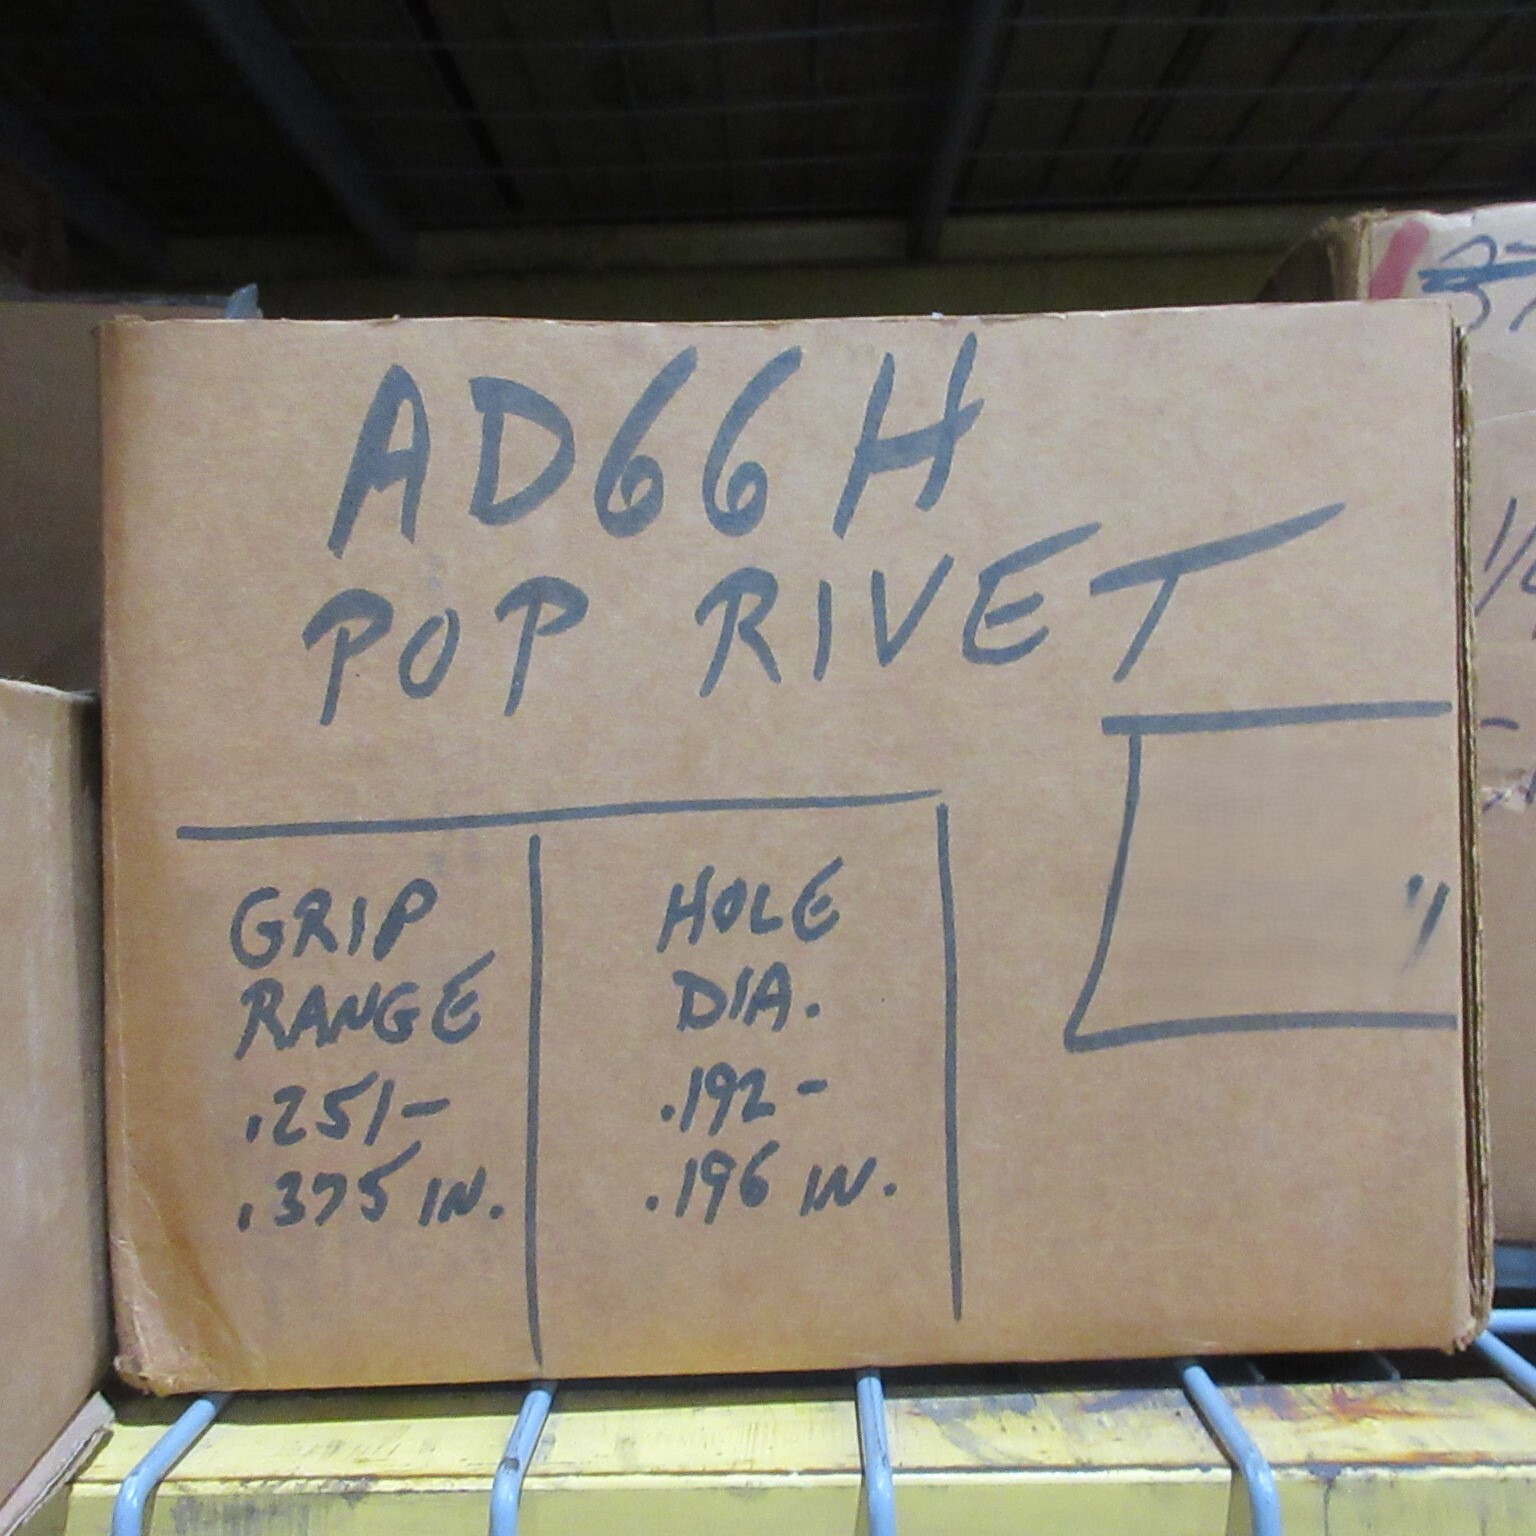 AD66H
POP RIVET
GRIP
RANGE
.251-
.375 IN.
HOLE
DIA.
.192-
.196 IN.